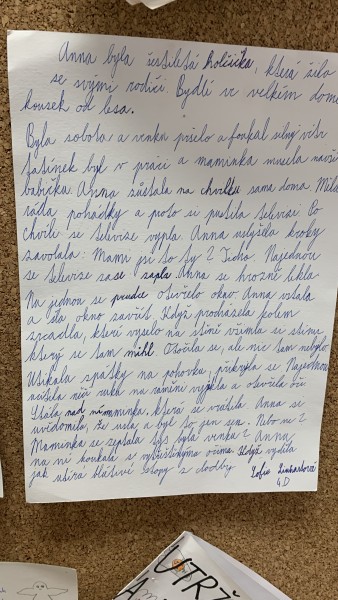 Anna byla šestiletá holčička, která žila
se svými rodiči. Bydlí ve velkém domě
kousek od lesa.
Byla sobota a venku pršelo a foukal silný vítr
tatínek byl v práci a maminka musela navší
babičku Anna zůstala na chvilku sama doma. Mil
ráda pohádky a proto si pustila televizi. Po
chvíli se televize vypla. Anna uslyšela kroky
zavolala: Mami jsi to ty? Ticho. Najednou
se televize zase zapla. Anna se hrozně lekla
Na jednou se prudce otevřelo okno. Anna vstala
a šla okno zavřít. Když procházela kolem
zrcadla, které viselo na stěně všimla se stínu
který se tam mihl. Otočila se, ale nic tam nebylo.
Utíkala zpátky na pohovku, přikryla se. Najednou
ucítila něčí ruku na rameni vyjekla a otevřela oči
Stála nad ní maminka, která se vrátila. Anna si
uvědomila, že usla a byl to jen sen. Nebo ne?
Maminka se zeptala tys byla venku? Anna
na ní koukala s vytřeštěnýma očima. Když viděla
jak utírá blátivé stopy z chodby.
Žofie
4.D
UTRŽ
A